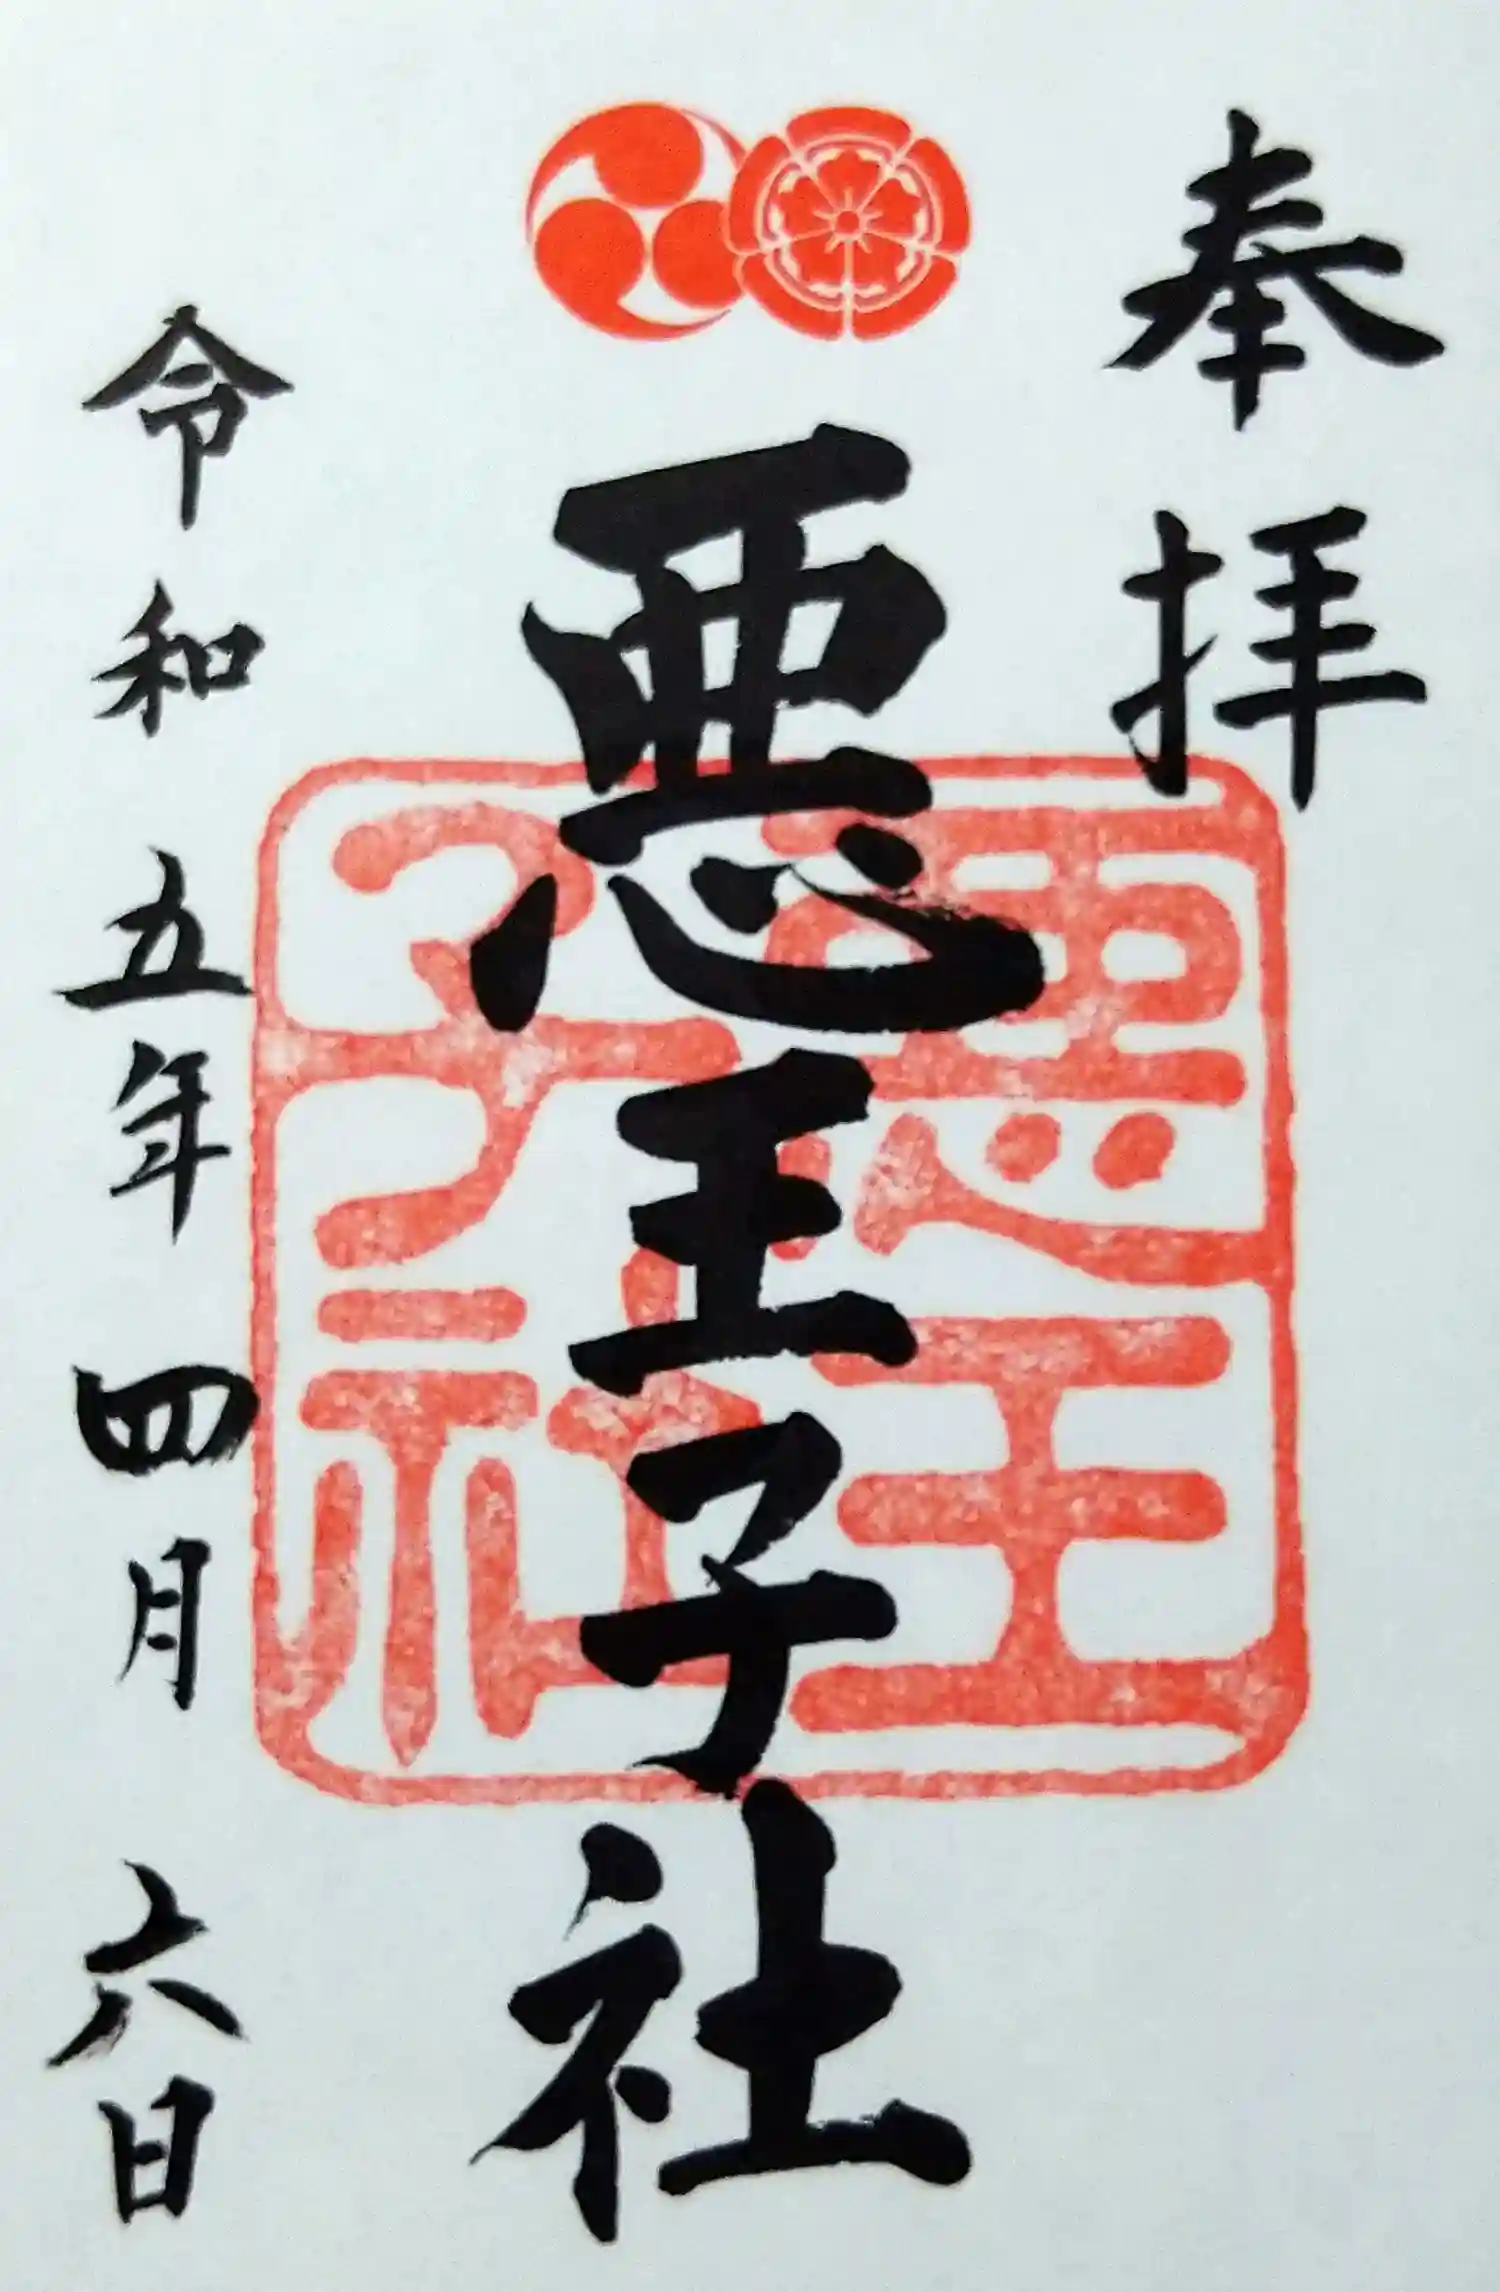 奉拝
悪王子社
惡王子社
令和五年四月六日